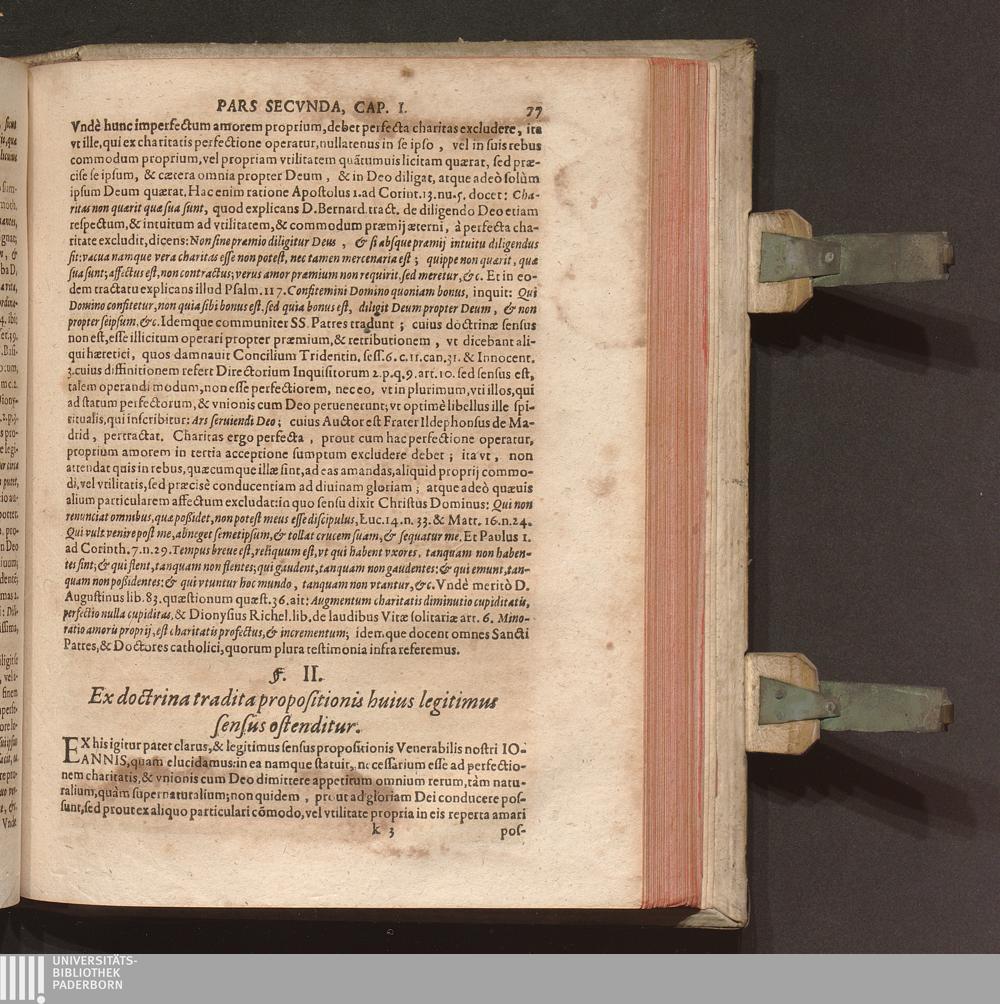 PARS SECVNDA, CAP. I. 77
Vndè hunc imperfectum amorem proprium, debet perfecta charitas excludere, ita
vt ille, qui ex charitatis perfectione operatur, nullatenus in se ipso, vel in suis rebus
commodum proprium, vel propriam vtilitatem quātumuis licitam quærat, sed præ-
cise se ipsum, & cætera omnia propter Deum, & in Deo diligat, atque adeò solùm
ipsum Deum quærat. Hac enim ratione Apostolus 1. ad Corint. 13. nu. 5. docet: Cha-
ritas non quærit quæ sua sunt, quod explicans D. Bernard. tract. de diligendo Deo etiam
respectum, & intuitum ad vtilitatem, & commodum præmij æterni, à perfecta cha-
ritate excludit, dicens: Non sine præmio diligitur Deus, & si absque præmij intuitu diligendus
sit: vacua namque vera charitas esse non potest, nec tamen mercenaria est; quippe non quærit, quæ
sua sunt; affectus est, non contractus; verus amor præmium non requirit, sed meretur, &c. Et in eo-
dem tractatu explicans illud Psalm. 117. Confitemini Domino quoniam bonus, inquit: Qui
Domino confitetur, non quia sibi bonus est, sed quia bonus est, diligit Deum propter Deum, & non
propter seipsum, &c. Idemque communiter SS. Patres tradunt; cuius doctrinæ sensus
non est, esse illicitum operari propter præmium, & retributionem, vt dicebant ali-
qui hæretici, quos damnauit Concilium Tridentin. sess. 6. c. 11. can. 31. & Innocent.
3. cuius diffinitionem refert Directorium Inquisitorum 2. p. q. 9. art. 10. sed sensus est,
talem operandi modum, non esse perfectiorem, nec eo, vt in plurimum, vti illos, qui
ad statum perfectorum, & vnionis cum Deo peruenerunt; vt optimè libellus ille spi-
ritualis, qui inscribitur: Ars seruiendi Deo; cuius Auctor est Frater Ildephonsus de Ma-
drid, pertractat. Charitas ergo perfecta, prout cum hac perfectione operatur,
proprium amorem in tertia acceptione sumptum excludere debet; ita vt, non
attendat quis in rebus, quæcumque illæ sint, ad eas amandas, aliquid proprij commo-
di, vel vtilitatis, sed præcisè conducentiam ad diuinam gloriam; atque adeò quæuis
alium particularem affectum excludat: in quo sensu dixit Christus Dominus: Qui non
renunciat omnibus, quæ possidet, non potest meus esse discipulus, Luc. 14. n. 33. & Matt. 16. n. 24.
Qui vult venire post me, abneget semetipsum, & tollat crucem suam, & sequatur me. Et Paulus 1.
ad Corinth. 7. n. 29. Tempus breue est, reliquum est, vt qui habent vxores, tanquam non haben-
tes sint; & qui flent, tanquam non flentes; qui gaudent, tanquam non gaudentes: & qui emunt, tan-
quam non possidentes: & qui vtuntur hoc mundo, tanquam non vtantur, &c. Vndè meritò D.
Augustinus lib. 83. quæstionum quæst. 36. ait: Augmentum charitatis diminutio cupiditatis,
perfectio nulla cupiditas, & Dionysius Richel. lib. de laudibus Vitæ solitariæ art. 6. Mino-
ratio amoris proprij, est charitatis profectus, & incrementum; idemque docent omnes Sancti
Patres, & Doctores catholici, quorum plura testimonia infra referemus.
§. II.
Ex doctrina tradita propositionis huius legitimus
sensus ostenditur.
EX his igitur patet clarus, & legitimus sensus propositionis Venerabilis nostri IO-
ANNIS, quam elucidamus: in ea namque statuit, necessarium esse ad perfectio-
nem charitatis, & vnionis cum Deo dimittere appetitum omnium rerum, tàm natu-
ralium, quàm supernaturalium; non quidem, prout ad gloriam Dei conducere pos-
sunt, sed prout ex aliquo particulari cōmodo, vel vtilitate propria in eis reperta amari
k 3 pos-
UNIVERSITÄTS-
BIBLIOTHEK
PADERBORN